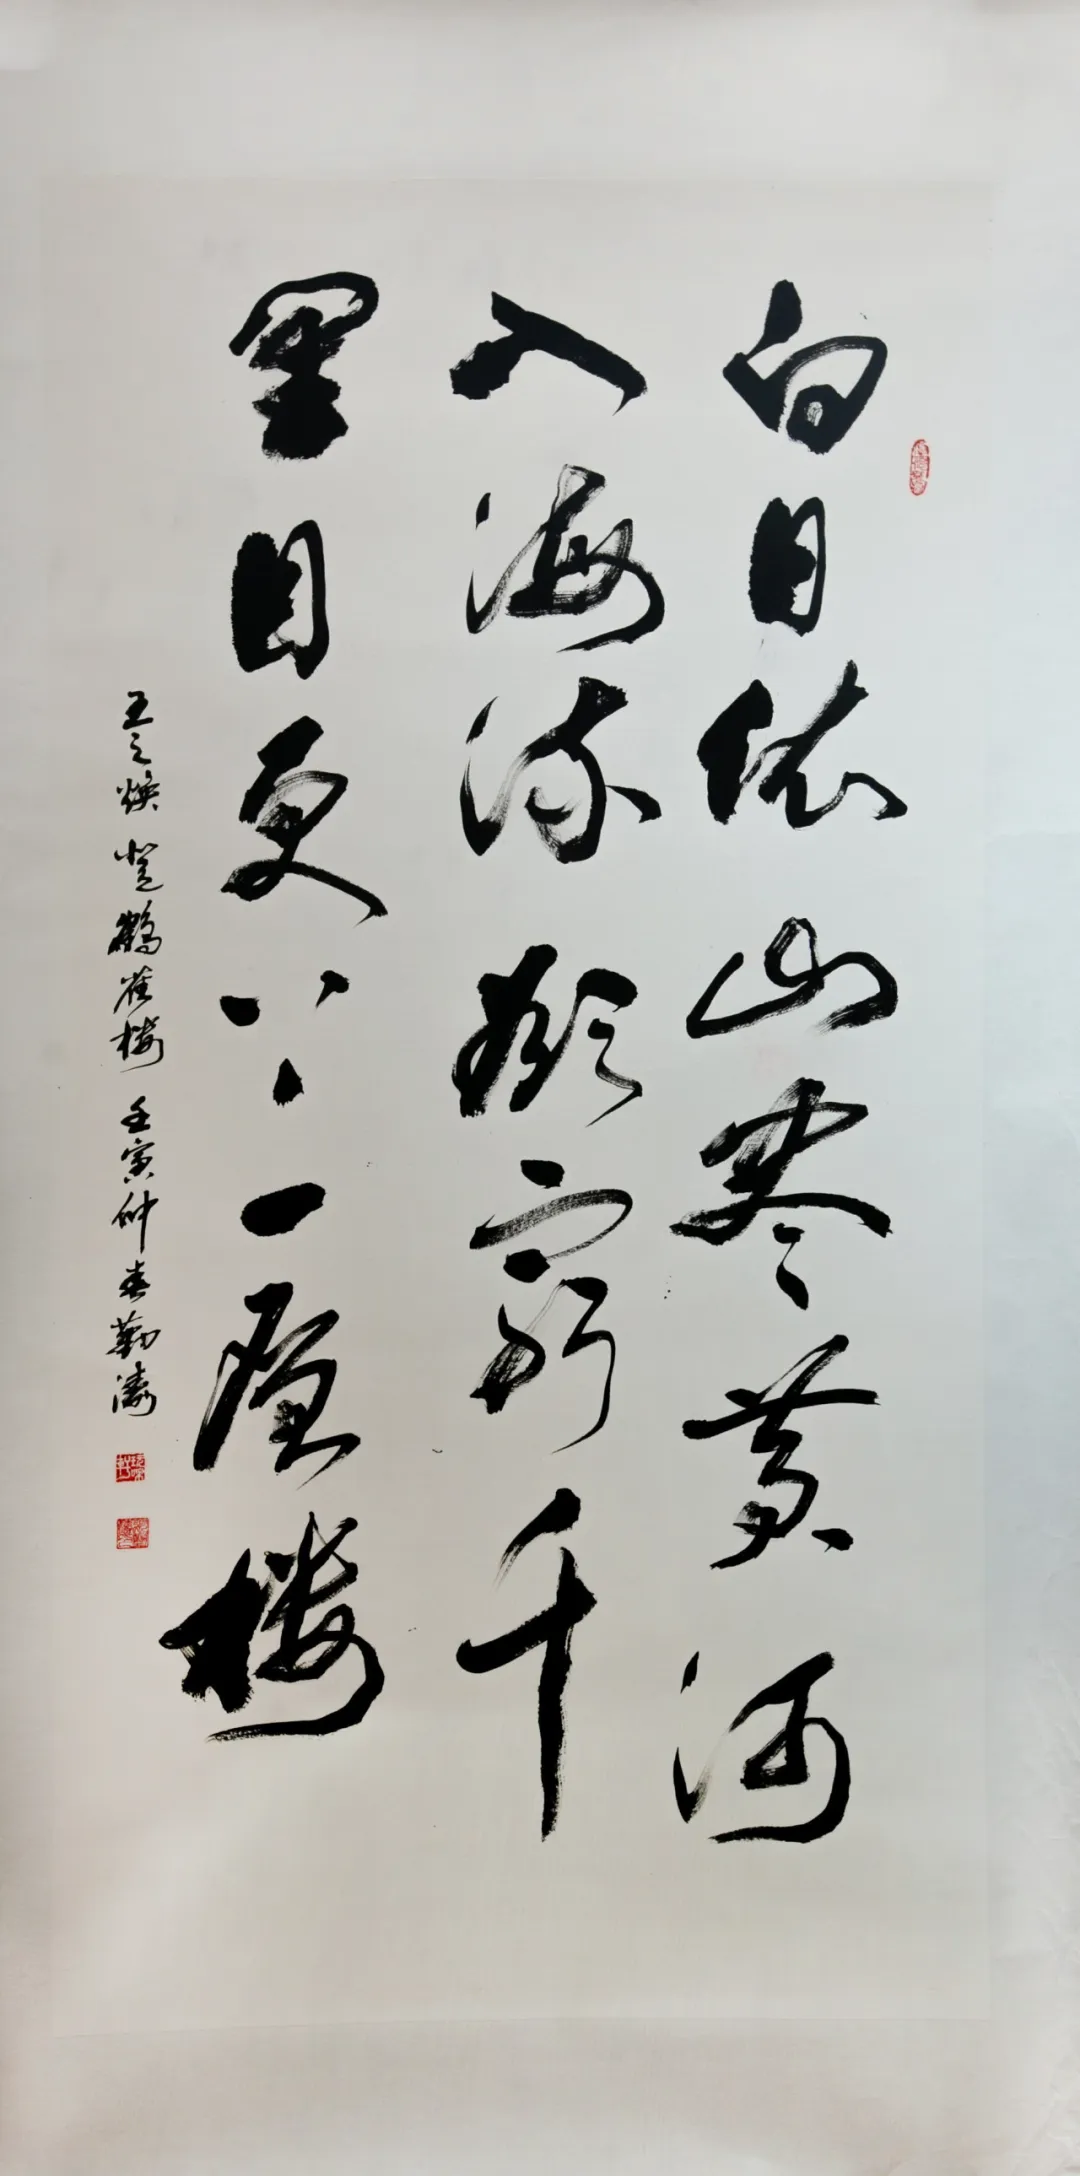 白日依山尽黄河
入海流欲窮千
里目更上一層楼
王之焕登鹳雀楼 壬寅仲春勤涛